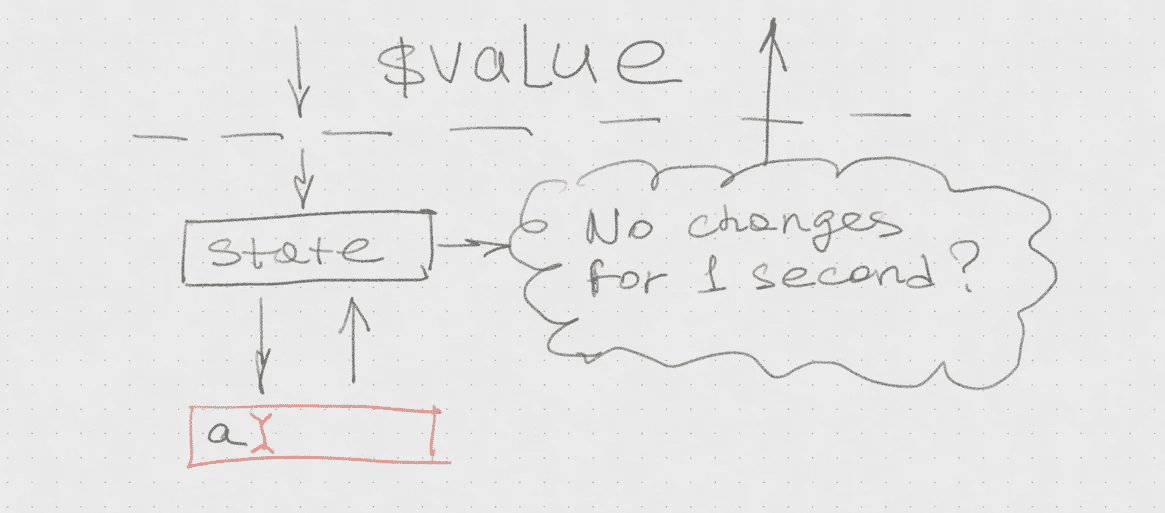 $value
state
No changes
for 1 second?
a